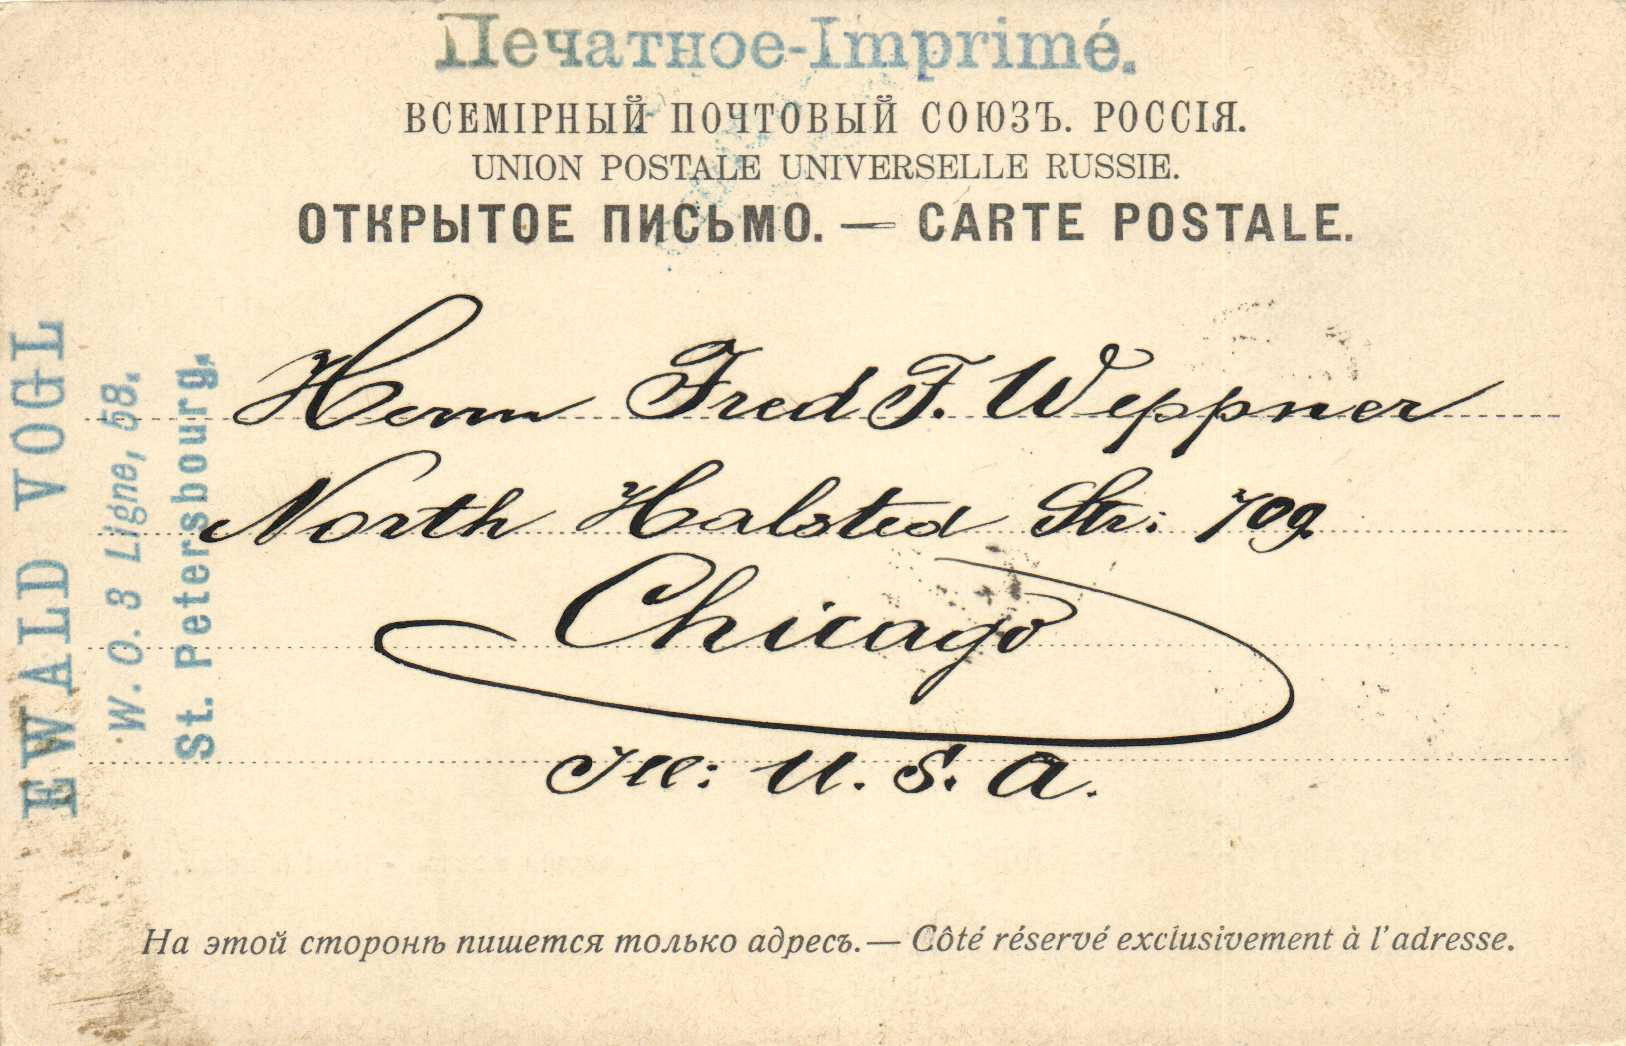 Печатное-Imprimé.
ВСЕМІРНЫЙ ПОЧТОВЫЙ СОЮЗЪ. РОССІЯ.
UNION POSTALE UNIVERSELLE RUSSIE.
ОТКРЫТОЕ ПИСЬМО. — CARTE POSTALE.
EWALD VOGL
W. O. 3 Ligne, 58.
St. Petersbourg.
Herrn Fred F. Weppner
North Halsted Str: 709
Chicago
Ill: U. S. A.
На этой сторонѣ пишется только адресъ. — Côté réservé exclusivement à l'adresse.